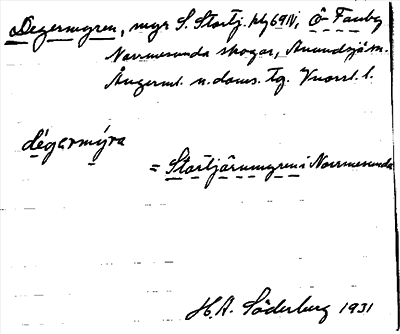 Degermyren, myr S. Stortj. bl 69N, Ö Tauberg
Norrmesunda skogar, Anundsjö sn.
Ångerml. n. doms. tg. Vuorsl. l.
dégermýra
= Stortjärnmyren i Norrmesunda
H.A. Söderberg 1931